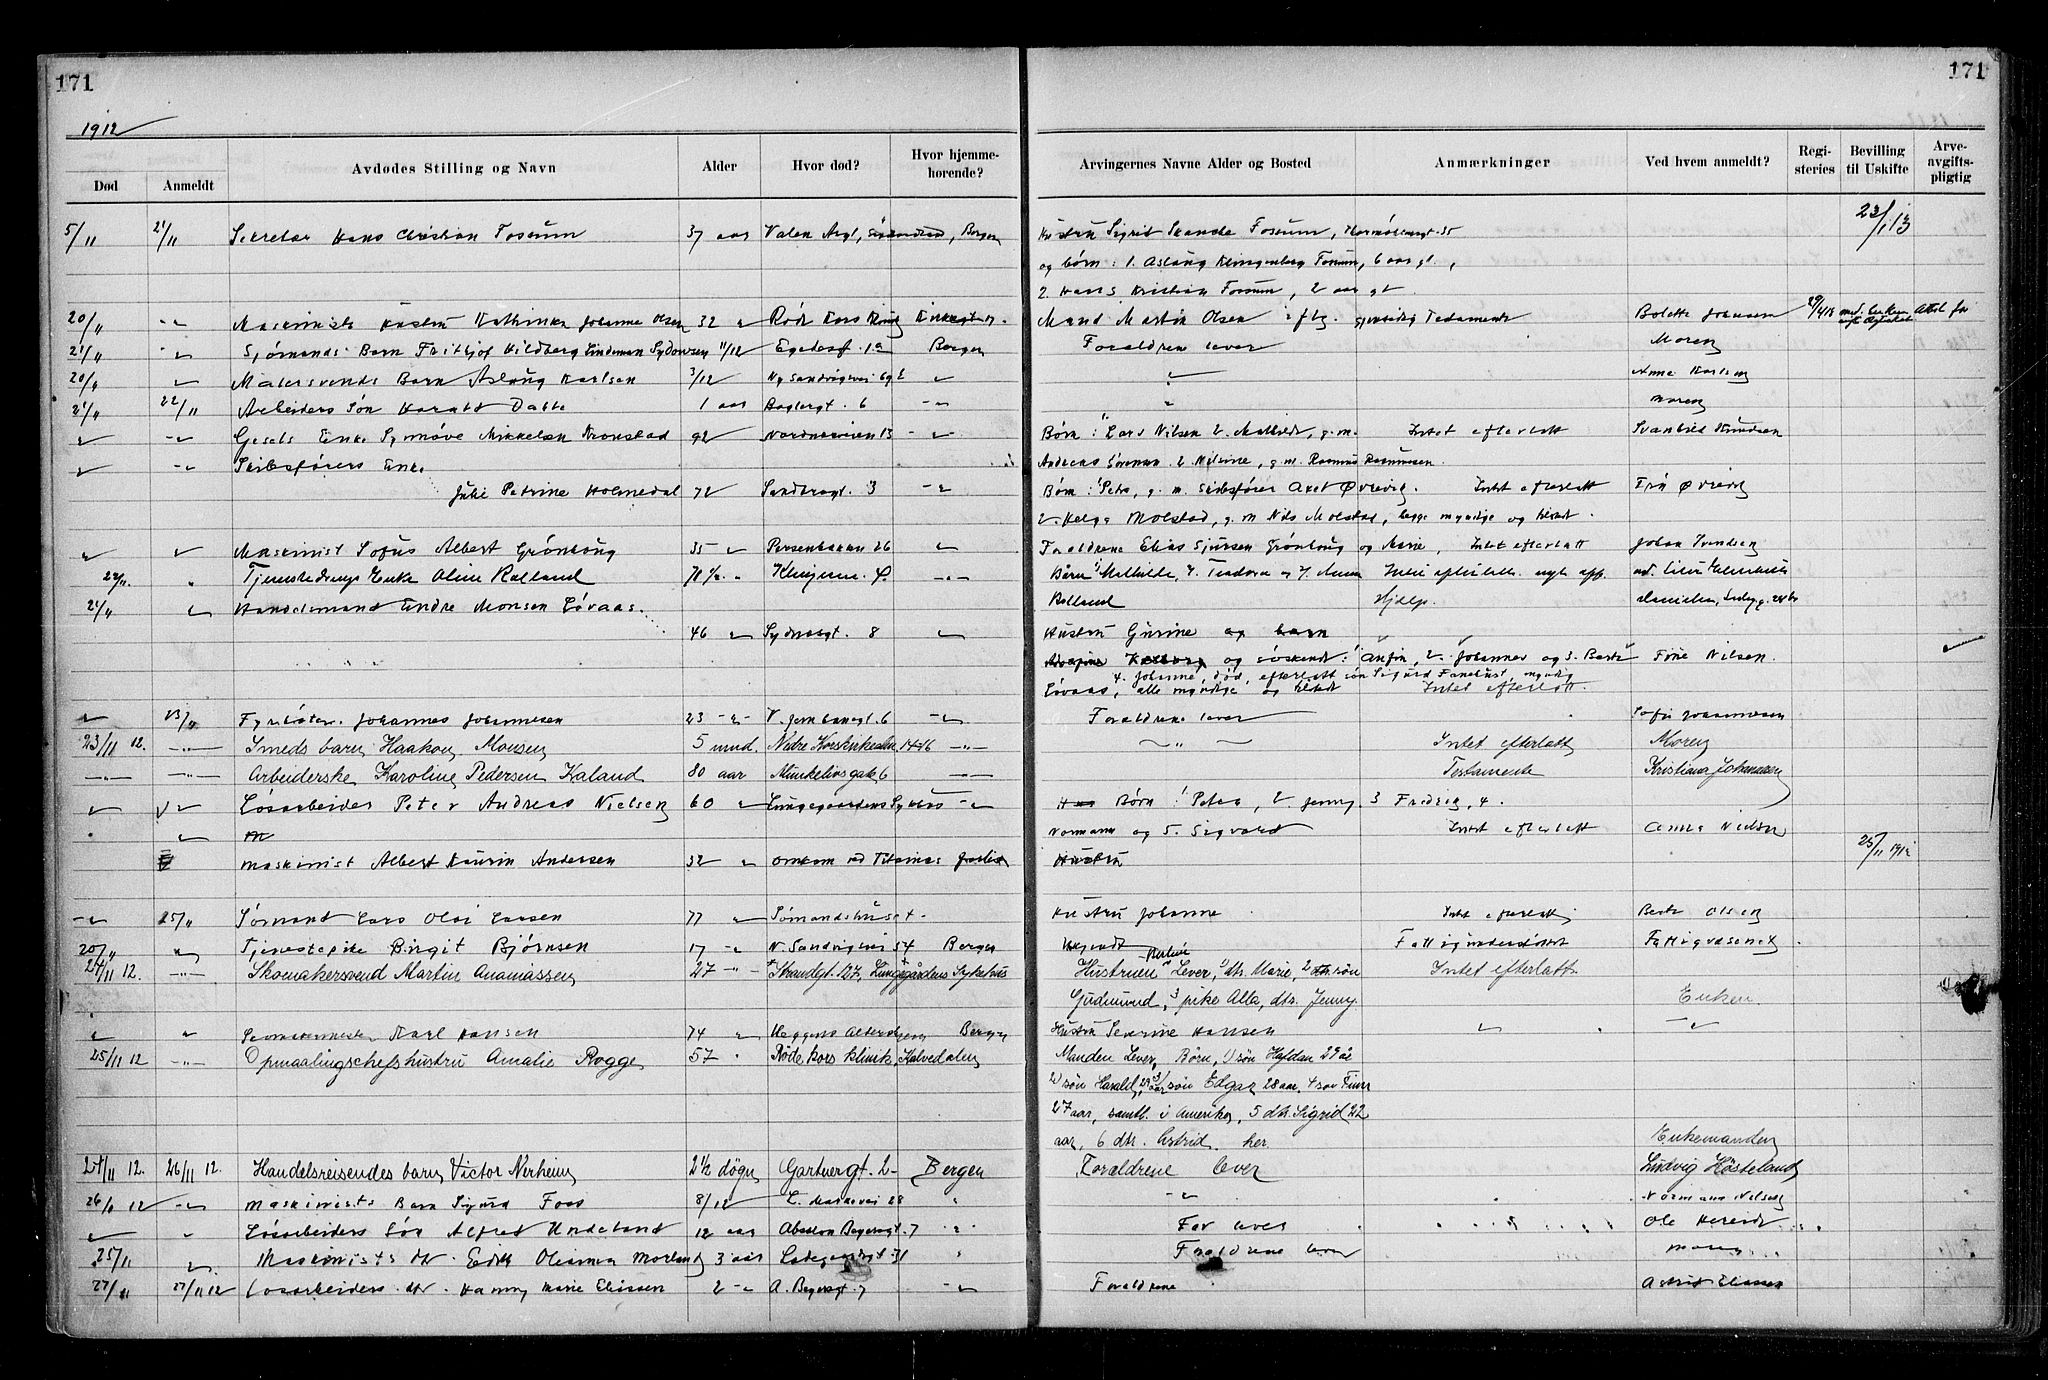 171
171
1912
Død
Anmeldt
Avdødes Stilling og Navn
Alder
Hvor død?
Hvor hjemme-
hørende?
Arvingernes Navne Alder og Bosted
Anmærkninger
Ved hvem anmeldt?
Regi-
steries
Bevilling
til Uskifte
Arve-
avgifts-
pligtig
5/11 21/11 Sekretær Hans Christian Fossum 37 aar Valen Asyl, , Bergen Hustru Sigrid Skancke Fossum, 35 23/1 13
og børn: 1. Aslaug Klingenberg Fossum, 6 aar gl.,
2. Hans Kristian Fossum, 2 aar gl
20/" -"- Maskinists Hustru Kathinka Johanne Olsen 32 " Røde Kors Mand Martin Olsen iflg. gjensidig Testamente Bolette Johnsen
21/" " Sjømands Barn Fritjof Hildberg Lindeman Sydowsen 11/12 Egedesg. 1a Bergen Forældrene lever Moren
20/" " Malersvends Barn Aslaug Karlsen 3/12 Ny Sandvigsvei 69 " " Anna Karlsen
21/" 22/11 Arbeiders Søn Harald Dahle 1 aar Baglergt. 6 -"- " Moren
" -"- Gesels Enke Synnøve Mikkelsen Kronstad 92 Nordnesveien 13 -"- Børn: 1. Lars Nilsen 2. Mathilde, g.m. Intet efterlatt Svanhild Knudsen
" -"- Skibsførers Enke Andreas Sørensen 2. Nilsine, g.m. Rasmus Rasmussen.
Julie Petrine Holmedal 72 Sandbrogt. 3 -"- Børn: 1. Petra, g.m. Skibsfører Axel Øvrevig. Intet efterlatt Fru Øvrevig
2. Helga Molstad, g.m. Nils Molstad, begge myndige og tilsted.
" " Maskinist Sofus Albert Grønhaug 35 " Persenbakken 26 " Forældrene Elias Sjursen Grønhaug og Marie, Intet efterlatt Johan Svendsen
22/11. " Tjenstedrengs Enke Oline Rolland 78 1/2 " Klingesm. 4. -"- Børn 1. Mathilde, 2. Teodora og 3. Anna Intet efterlatt.
21/" " Handelsmand Endre Monsen Løvaas. Rolland Hjælp.
46 " Sydnesgt. 8 " Hustru Gurine og barn
og søskende: 1. Anfin, 2. Johannes og 3. Berta Nilsen.
4. Johanne, død, efterlatt søn Sigurd Fanehust, myndig
Løvaas, alle myndige og tilsted Intet efterlatt.
" 23/" Fyrbøter Johannes Johannesen 23 -"- V. Jernbanegt. 6 -"- Forældrene lever Sofie Johannesen
23/11 12. -"- Smeds barn Haakon Monsen 5 mnd. Nedre Korskirkealm. 14-16 -"- -"- Intet efterlatt Moren
-"- -"- Arbeiderske Karoline Pedersen Kaland 80 aar Munkelivsgate 6 -"- Testamente Kristiane Johannesen
" " Løsarbeider Peter Andreas Nielsen 60 " Lungegaardens Sykehus -"- Børn 1. Petra, 2 Jenny. 3 Fredrik, 4.
" Normann og 5. Sigvard Intet efterlatt Anna Nielsen
Maskinist Albert Laurin Andersen 32 " omkom ved Titanics forlis Hustru 25/11 1912
-"- 25/" Sømand Lars Olai Larsen 77 " Sømandshuset. Hustru Johanne Intet efterlatt Berta Olsen
20/" " Tjenestepike Birgit Bjørnsen 17 -"- N. Sandvigsvei 54 Bergen Ukjendt Fattigunderstøttet Fattigvæsenet
24/11 12. -"- Skomakersvend Martin Ananiassen 27 -"- Strandgt. 127, Lungegårdens Sykehus Hustruen Lever, 1 dtr. Marie, 2 søn Intet efterlatt.
Gudmund, 3 pike Alla, dtr. Jenny. Enken
" " Karl Hansen 74 " Bergen Hustru Severine Hansen " -"-
25/11 12 -"- Opmaalingschefshustru Amalie Rogge 57 " Røde kors klinik, Kalvedalen Manden Lever, Børn, 1) søn Halfdan 29 år
2) søn Harald, 29 aar 3) søn Edgar 28 aar. 4 søn Finn
27 aar, samtl. i Amerika, 5 dtr. Sigrid 22
aar, 6 dtr. Astrid her Enkemanden
24/11 12. 26/11 12. Handelsreisendes barn Victor Nerheim 2 1/2 døgn Gartnergt. 2 Bergen Forældrene lever Ludvig Hösteland
26/11 12 -"- Maskinists Barn Sigurd Foss 8/12 L. Markevei 28 " -"- Normann Nilsen
" " Løsarbeiders Søn Alfred Hordeland 12 aar Absalon Beyersgt. 7 " Far lever Ole Hereid
25/11 " Maskinists dtr. Edith Oleanna Morland 3 aar Ladegaardsgt. 31 " Forældrene lever Moren
27/11 27/11 12 Løsarbeiders dtr. Hanny Marie Eliassen 2 -"- A. Beyersgt. 7 -"- Forældrene Astrid Eliassen